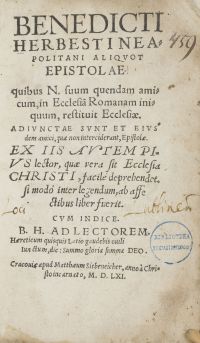 BENEDICTI
HERBESTI NEA-
POLITANI ALIQVOT
EPISTOLAE
459
quibus N. suum quendam ami
cum, in Ecclesiā Romanam ini
quum, restituit Ecclesiæ.
ADIVNCTAE SVNT ET EIVS
dem amici, quæ non interciderant, Epistolæ.
EX IIS AVTEM PI-
VS lector, quæ vera sit Ecclesia
CHRISTI, facile deprehendet,
si modò inter legendum, ab affe
ctibus liber fuerit.
CVM INDICE.
B. H. AD LECTOREM.
Hæreticum quisquis Latio gaudebis ouili
iunctum, dic: summo gloria summa DEO.
BIBLIOTEKA
Cracouiæ apud Matthæum Sibeneicher, anno à Chri
sto incarnato, M. D. LXI.